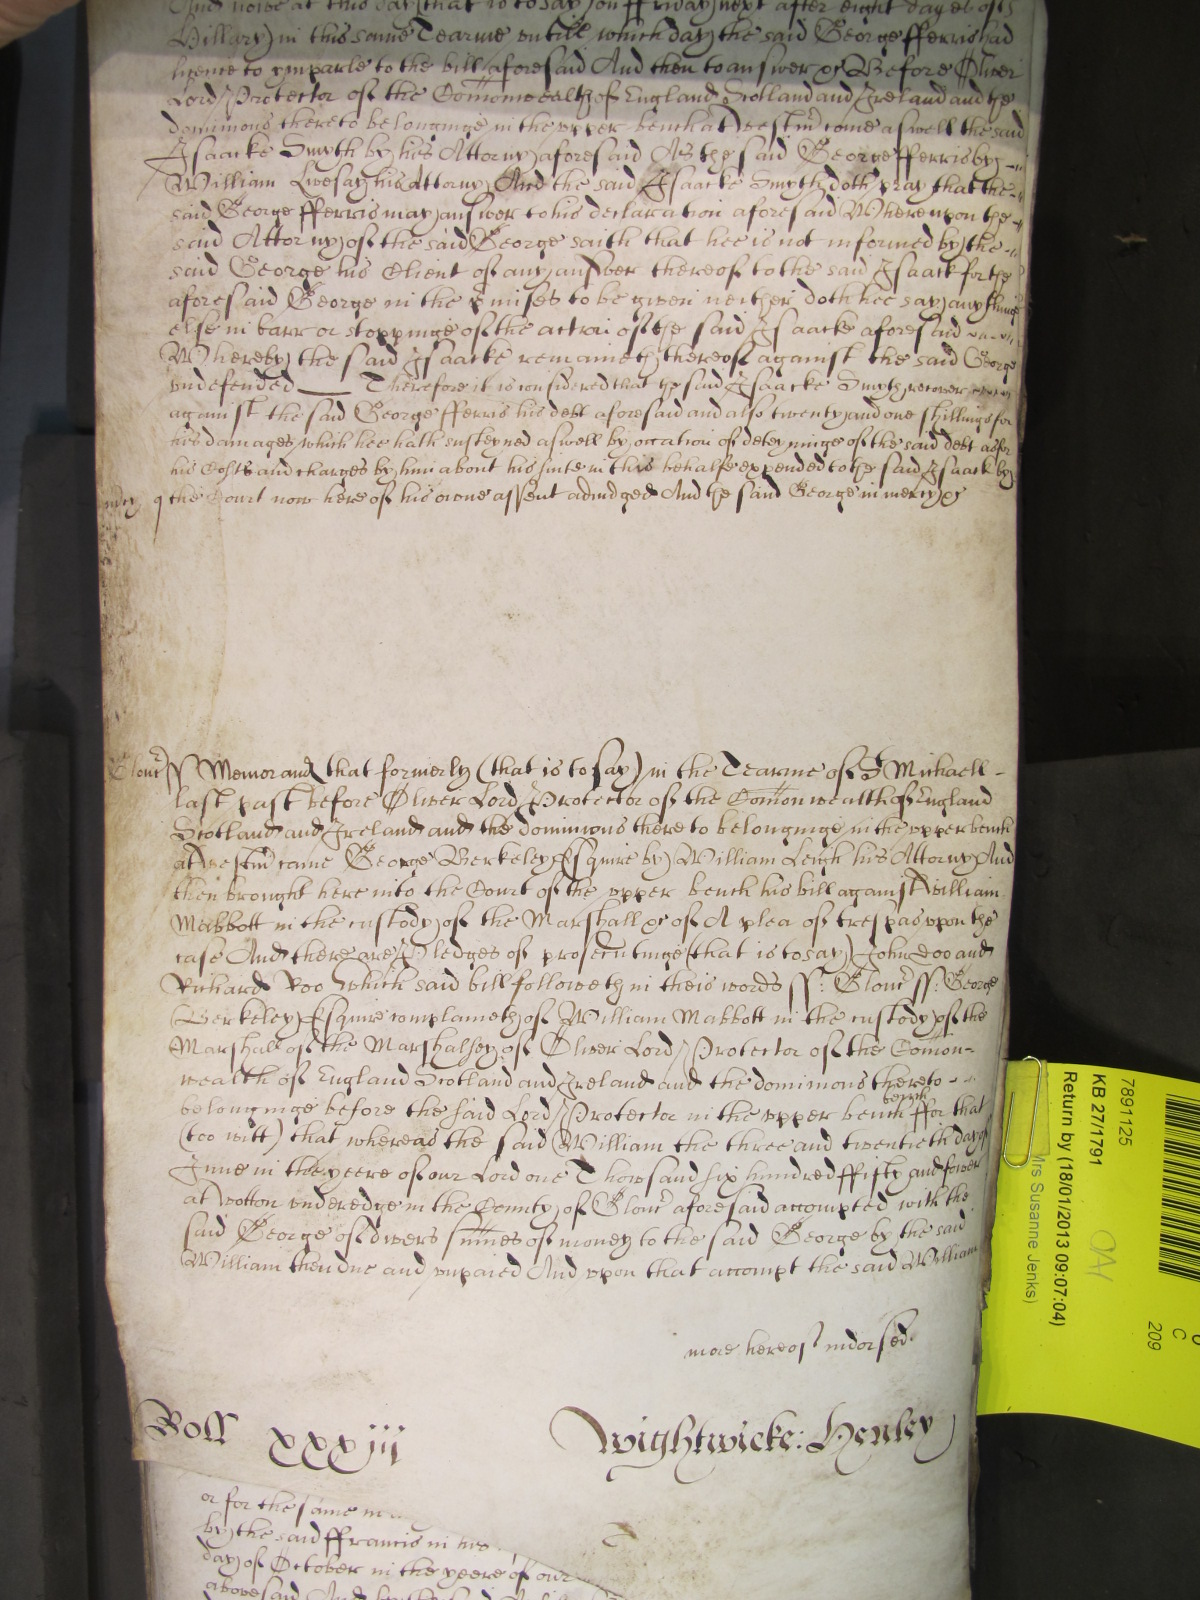 And nowe at this day (that is to say) on ffriday next after eight dayes of St
Hillary in this same Tearme untill which day the said George fferris had
licence to imparle to the bill aforesaid And then to answer &c Before Oliver
Lord Protector of the Comonwealth of England Scotland and Ireland and the
dominions thereto belonginge in the upper bench at Westmr come aswell the said
Isaacke Smyth by his Attorny aforesaid As the said George fferris by
William Livesay his Attorny And the said Isaacke Smyth doth pray that the
said George fferris may answer to his declaration aforesaid Whereupon the
said Attorny of the said George saith that hee is not informed by the
said George his Client of any answer thereof to the said Isaack for the
aforesaid George in the pmises to be given neither doth hee say any thinge
else in barr or stoppinge of the action of the said Isaacke aforesaid
Whereby the said Isaacke remaineth thereof against the said George
undefended Therefore it is considered that the said Isaacke Smyth recover
against the said George fferris his debt aforesaid and also twenty and one shillings for
his damages which hee hath susteyned aswell by occation of deteyninge of the said debt as for
his Costs and charges by him about his suite in this behalfe expended to the said Isaack by
the Court now here of his owne assent adiudged And the said George in mercy &c
Glouc ss Memorand that formerly (that is to say) in the Tearme of St Michaell
last past before Oliver Lord Protector of the Comonwealth of England
Scotland and Ireland and the dominions thereto belonginge in the upper bench
at Westmr came George Berkeley Esquire by William Leigh his Attorny And
then brought here into the Court of the upper bench his bill against William
Mabbott in the custody of the Marshall &c of A plea of trespas upon the
case And there are Pledges of prosecutinge (that is to say) John Doo and
Richard Roo Which said bill followeth in theis words ss: Glouc ss: George
Berkeley Esquire complaineth of William Mabbott in the custody of the
Marshall of the Marshalsey of Oliver Lord Protector of the Comon-
wealth of England Scotland and Ireland and the dominions thereto
belonginge before the said Lord Protector in the upper bench bench ffor that
(too witt) that whereas the said William the three and twentieth day of
June in the yeere of our Lord one Thowsand six hundred ffifty and fower
at Wotton underedge in the County of Glouc aforesaid accompted with the
said George of divers sumes of money to the said George by the said
William then due and unpaied And upon that accompt the said William
more hereof indorsed
Roll xxxiij
Wightwicke: Henley
or for the same in
by the said ffrancis in
day of October in the yeere of our
abovesaid And
7891125
KB 27/1791
Return by (18/01/2013 09:07:04)
Mrs Susanne Jenks)
C
209